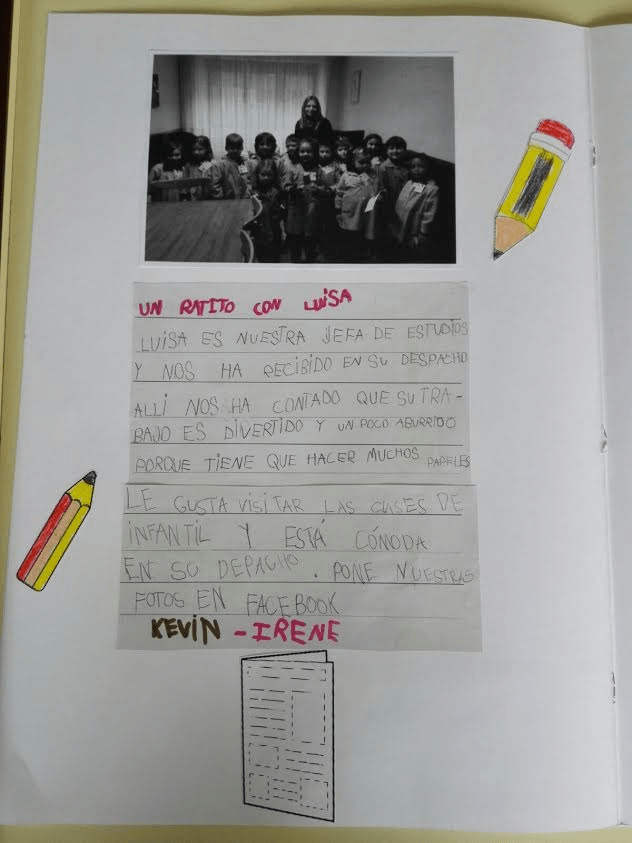 UN RATITO CON LUISA
LUISA ES NUESTRA JEFA DE ESTUDIOS
Y NOS HA RECIBIDO EN SU DESPACHO
ALLI NOS HA CONTADO QUE SU TRA-
BAJO ES DIVERTIDO Y UN POCO ABURRIDO
PORQUE TIENE QUE HACER MUCHOS PAPELES
LE GUSTA VISITAR LAS CLASES DE
INFANTIL Y ESTÁ CÓMODA
EN SU DEPACHO. PONE NUESTRAS
FOTOS EN FACEBOOK
KEVIN - IRENE